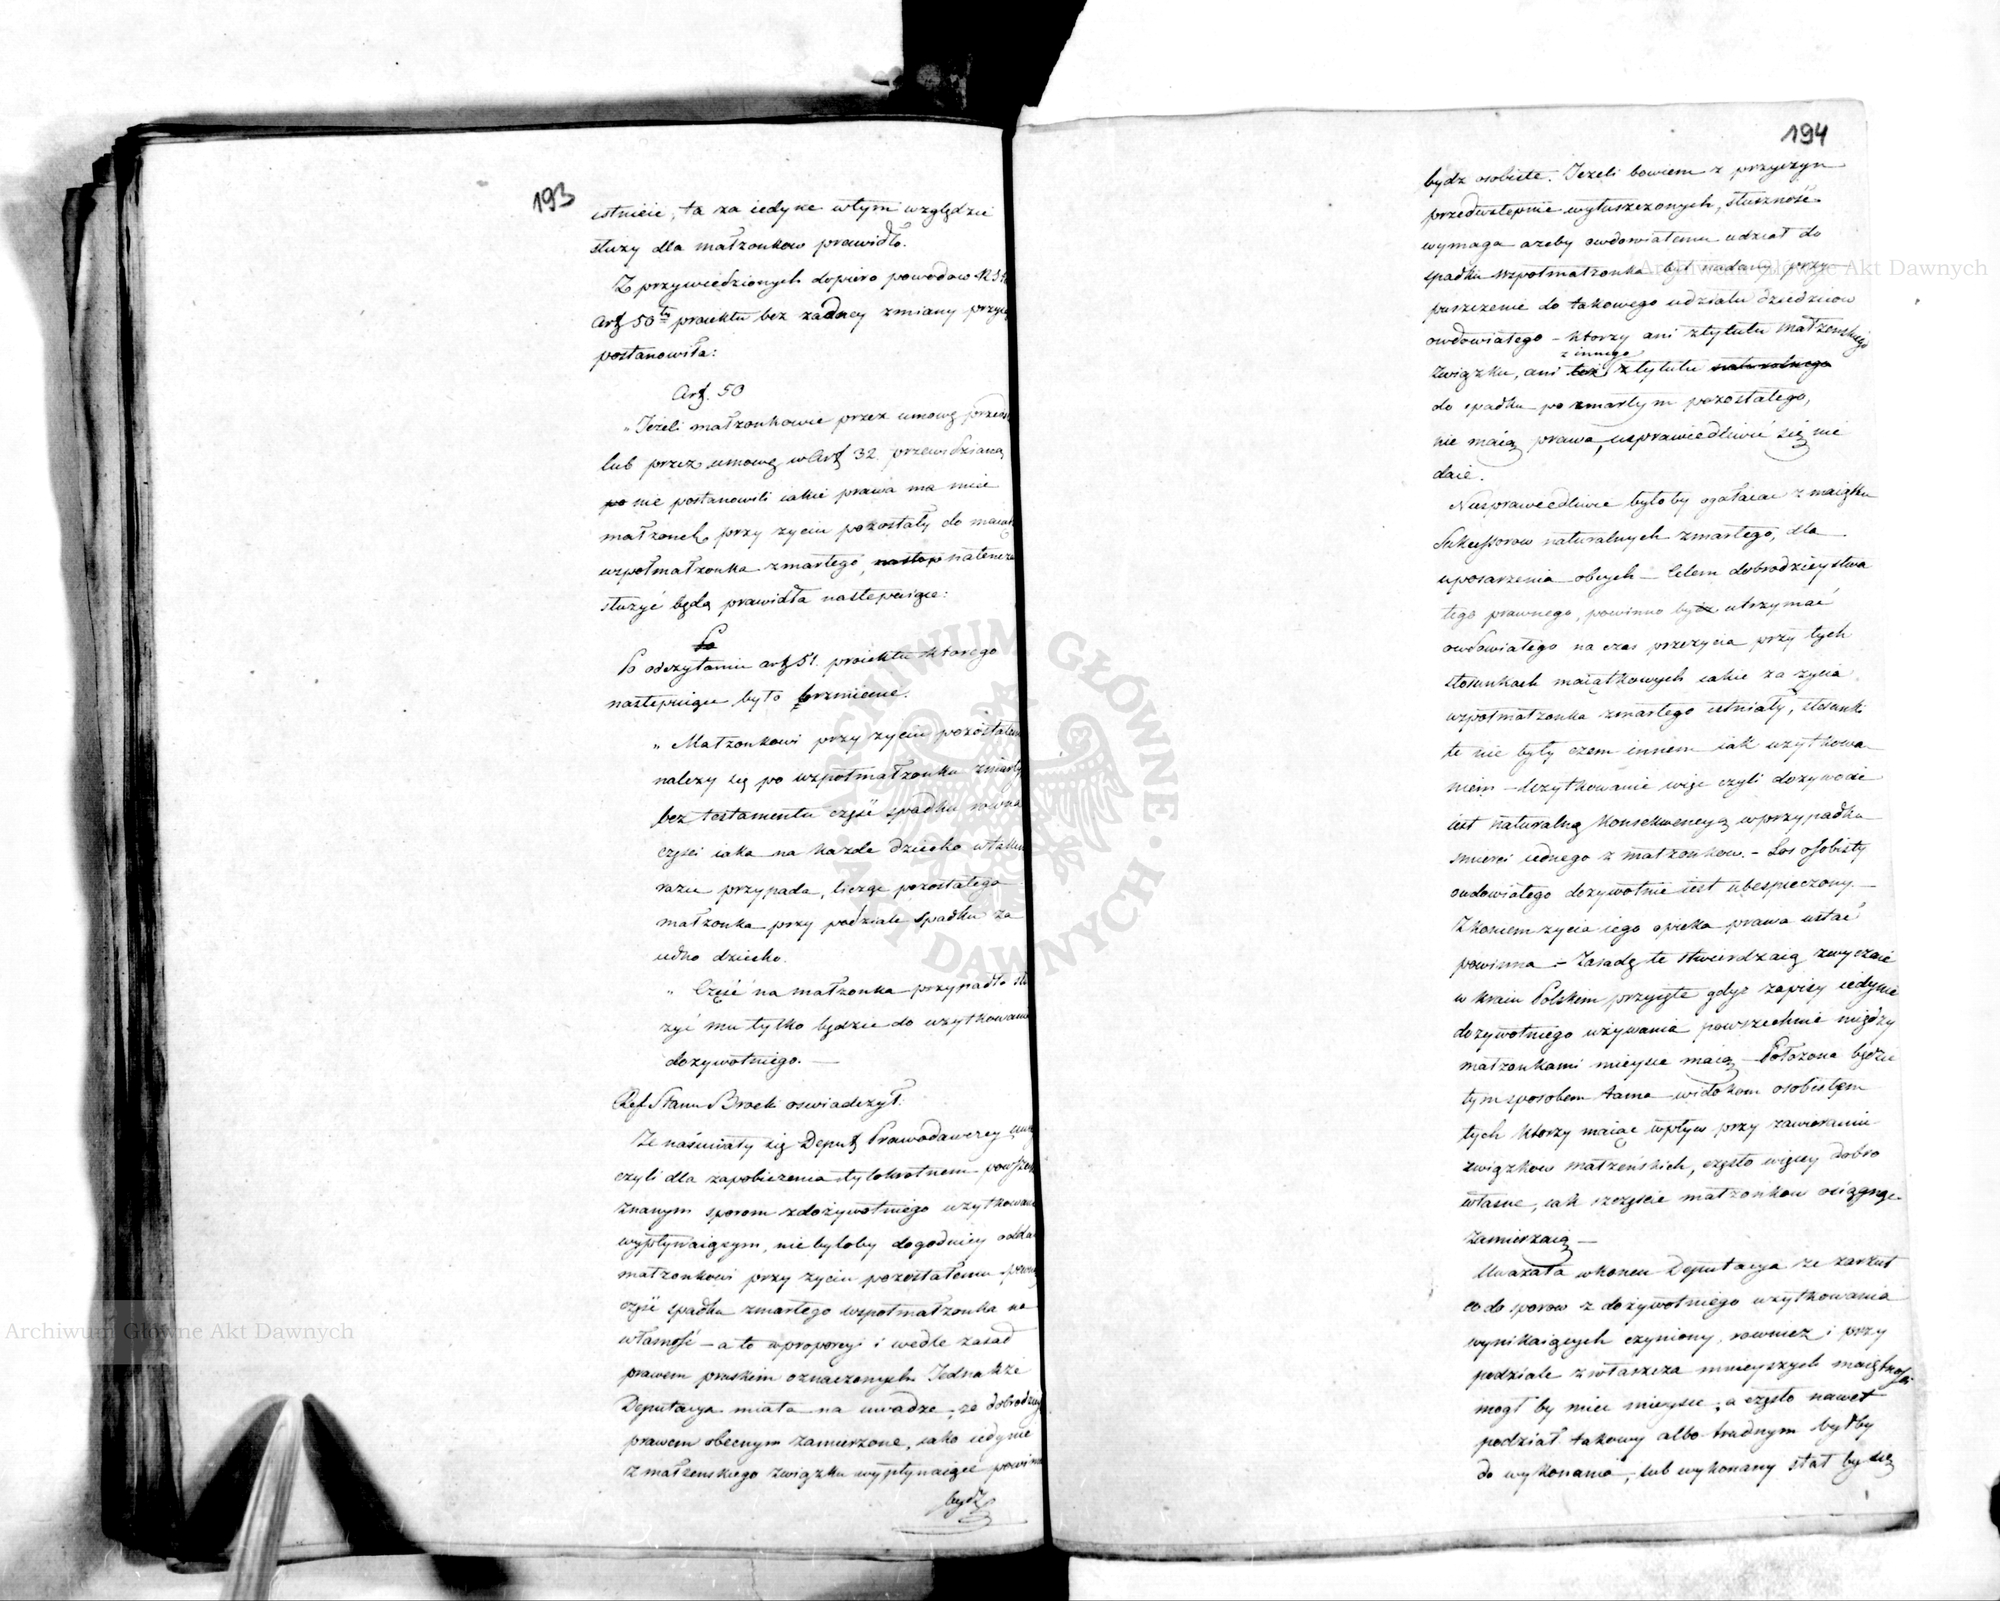 193
istnieie, ta za iedyne w tym względzie
służy dla małżonkow prawidło.
Z przywiedzionych dopiero powodow
Art 50ty proiektu bez żadney zmiany
postanowiła:
Art. 50
„Jeżeli małżonkowie przez umowę
lub przez umowę w Art 32. przewidzianą
nie postanowili iakie prawa ma mieć
małżonek przy życiu pozostały do
wspołmałżonka zmarłego,
służyć będą prawidła następuiące:
Po odczytaniu art 51. proiektu ktorego
następuiące było brzmienie.
„Małżonkowi przy życiu
należy się po wspołmałżonku
bez testamentu część spadku rowna
części iaka na każde dziecko w takim
razie przypada, licząc pozostałego
małżonka przy podziale spadku za
iedno dziecko.
„Część na małżonka przypadła
żyć mu tylko będzie do użytkowania
dożywotniego. —
Ref Stanu Brocki oświadczył.
Że nasuwały się Deput Prawodawczey
czyli dla zapobieżenia tylokrotnem
znanym sporom z dożywotniego użytkowania
wypływaiącym, nie byłoby dogodniey
małżonkowi przy życiu pozostałemu
część spadku zmarłego wspołmałżonka na
własność — a to w proporcyi i wedle zasad
prawem pruskiem oznaczonych. Jednakże
Deputacya miała na uwadze, że
prawem obecnym zamierzone, iako iedynie
z małżenskiego związku wypływaiące
bydź
194
bydź osobiste. Jeżeli bowiem z przyczyn
przedwstępnie wyłuszczonych, słuszność
wymaga ażeby owdowiałemu udział do
spadku wspołmałżonka był nadany przy-
puszczenie do takowego udziału dziedzicow
owdowiałego — ktorzy ani z tytułu małżenskiego
z innego
związku, ani też z tytułu naturalnego
do spadku po zmarłym pozostałego,
nie maią prawa, usprawiedliwić się nie
daie.
Niesprawiedliwie byłoby ogałacać z maiątku
Sukcessorow naturalnych zmarłego, dla
uposarzenia obcych — Celem dobrodzieystwa
tego prawnego, powinno bydź utrzymać
owdowiałego na czas przeżycia przy tych
stosunkach maiątkowych iakie za życia
wspołmałżonka zmarłego istniały, stosunki
te nie były czem innem iak użytkowa-
niem — Użytkowanie więc czyli dożywocie
iest naturalną konsekwencyą w przypadku
śmierci iednego z małżonkow. — Los osobisty
owdowiałego dożywotnie iest ubespieczony. —
Z końcem życia iego opieka prawa ustać
powinna — Zasadę te stwierdzaią zwyczaie
w kraiu Polskim przyięte gdyż zapisy iedynie
dożywotniego używania powszechnie między
małżonkami mieysce maią — Położona będzie
tym sposobem tama widokom osobistym
tych ktorzy maiąc wpływ przy zawieraniu
związkow małżeńskich, często więcey dobro
własne, iak szczęście małżonkow osiągnąć
zamierzaią —
Uważała w koncu Deputacya że zarzut
co do sporow z dożywotniego użytkowania
wynikaiących czyniony, rownież i przy
podziale zwłaszcza mnieyszych maiątkow
mogł by mieć mieysce, a często nawet
podział takowy albo trudnym byłby
do wykonania, lub wykonany stał by się